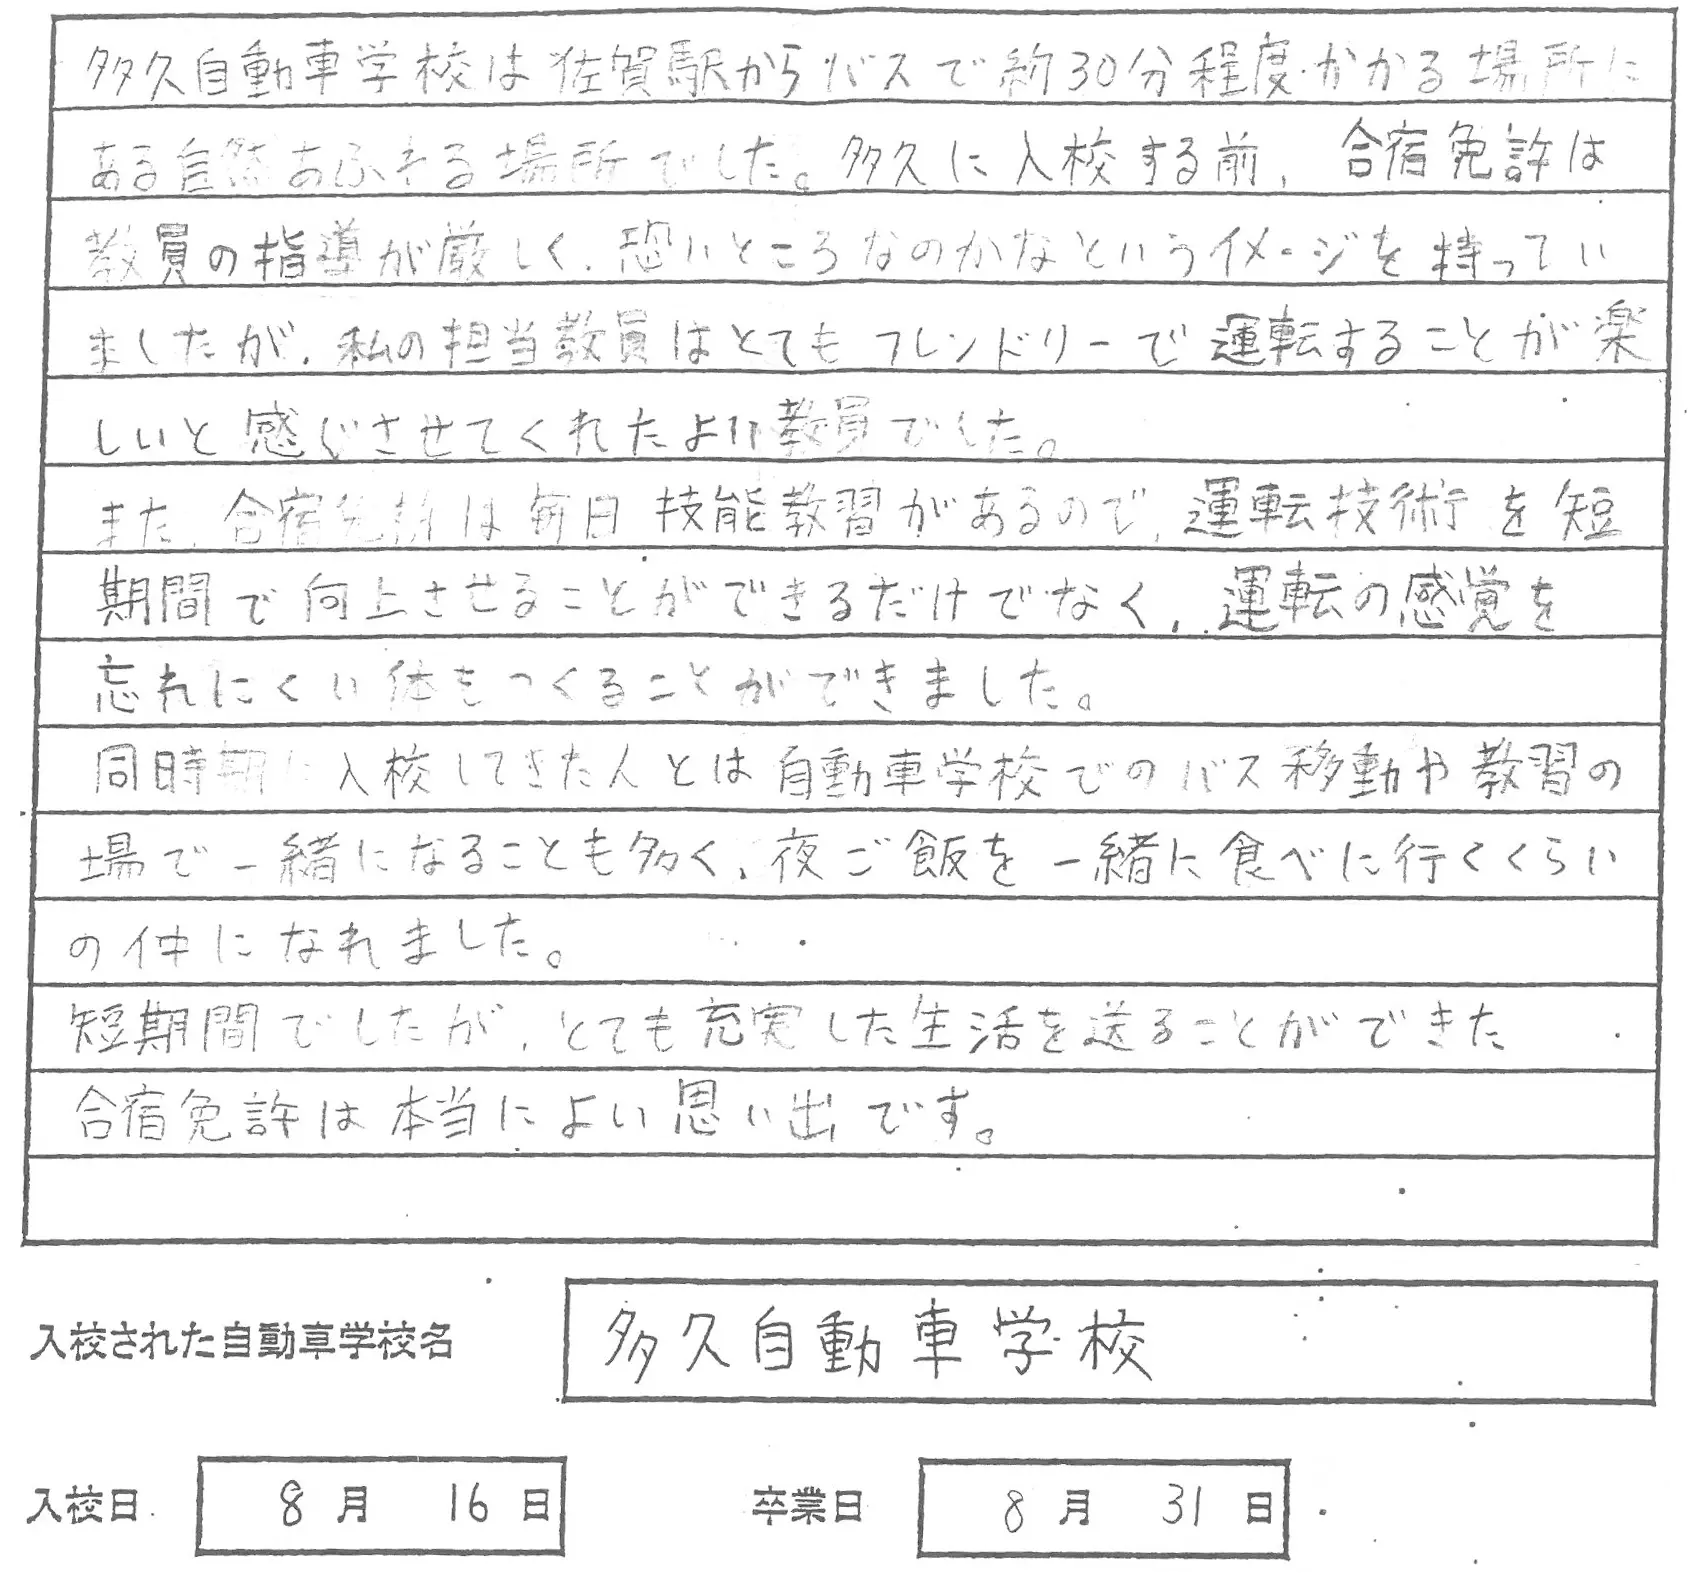 多久自動車学校は佐賀駅からバスで約30分程度かかる場所に
ある自然あふれる場所でした。多久に入校する前、合宿免許は
教員の指導が厳しく、恐いところなのかなというイメージを持ってい
ましたが、私の担当教員はとてもフレンドリーで運転することが楽
しいと感じさせてくれたよい教員でした。
また、合宿免許は毎日技能教習があるので、運転技術を短
期間で向上させることができるだけでなく、運転の感覚を
忘れにくい体をつくることができました。
同時期に入校してきた人とは自動車学校でのバス移動や教習の
場で一緒になることも多く、夜ご飯を一緒に食べに行くくらい
の仲になれました。
短期間でしたが、とても充実した生活を送ることができた
合宿免許は本当によい思い出です。
入校された自動車学校名 多久自動車学校
入校日 8月 16日 卒業日 8月 31日